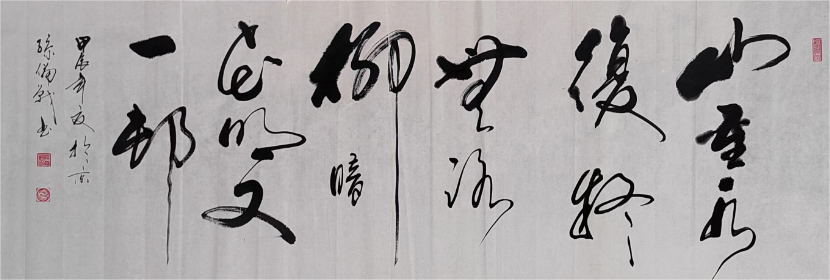 山重水
復疑
無路
柳暗
花明又
一邨
甲辰年夏於京
孫備戰书